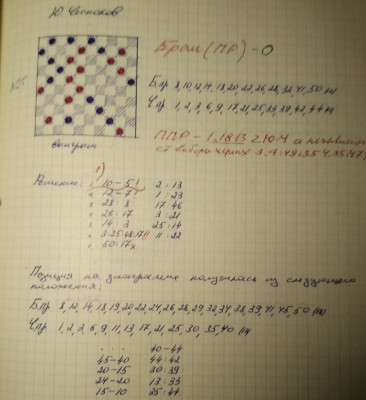 Ю. Чесноков
№25
Брак (ПР) - О
Б. пр 8, 10, 12, 14, 18, 20, 22, 26, 28, 32, 41, 50
Ч. пр 1, 2, 3, 6, 9, 17, 21, 25, 33, 39, 42, 44
выигрыш
ППР - 1. 18 13 2. 10 4 и независимо
от выбора черных
1)
Решение:
10-5! 2:13
12-7! 1:23
28:8 17:46
26:17 3:21
14:3 25:14
3:25:48:17!! 11:22
50:17x
Позиция на диаграмме получилась из следующего
положения:
Б. пр 8, 12, 14, 18, 19, 20, 22, 24, 26, 28, 29, 32, 34, 38, 39, 41, 45, 50
Ч. пр 1, 2, 3, 6, 9, 11, 13, 17, 21, 25, 30, 35, 40
. . . 40-44
45-40 44:42
20-15 30:39
24-20 13:33
15-10 35:44